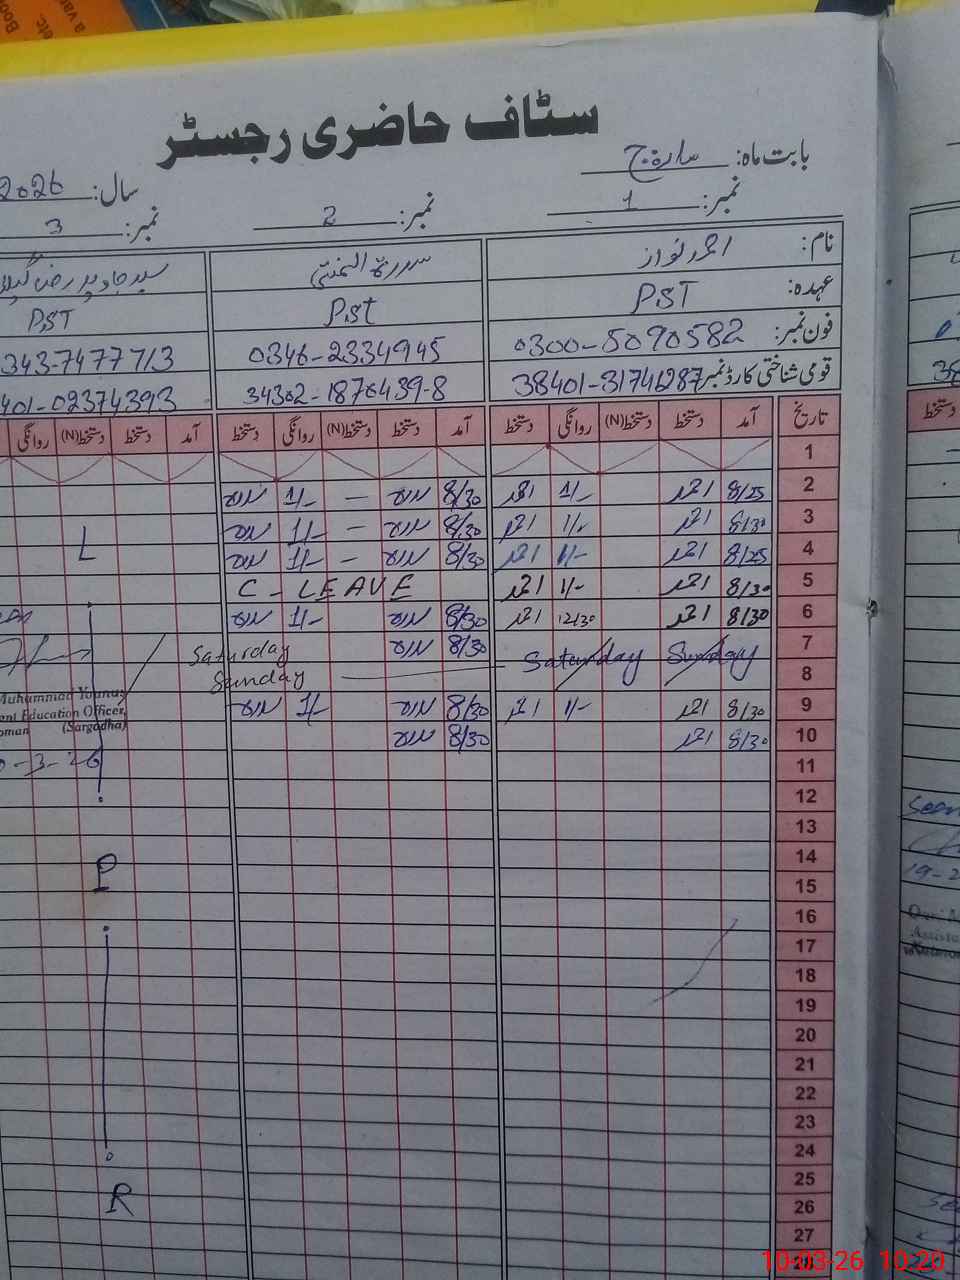 سٹاف حاضری رجسٹر
بابت ماہ: مارچ
سال: 2026
نمبر: 1
نمبر: 2
نمبر: 3
نام: احمد نواز
عہدہ: PST
PST
PST
فون نمبر: 0300-5090582
0346-2334945
343-7477713
قومی شناختی کارڈ نمبر 38401-31741287
34302-1870439-8
401-02374393
تاریخ آمد دستخط دستخط(N) روانگی دستخط آمد دستخط دستخط(N) روانگی دستخط آمد دستخط دستخط(N) روانگی
1
2 8/25 احمد 1/- احمد 8/30 - 1/-
3 8/30 احمد 1/- احمد 8/30 - 1/-
4 8/25 احمد 1/- احمد 8/30 - 1/- L
5 8/30 احمد 1/- احمد C - LEAVE
6 8/30 احمد 12/30 احمد 8/30 1/-
7 Saturday Sunday 8/30 Saturday
8 Sunday
9 8/30 احمد 1/- احمد 8/30 1/-
10 8/30 احمد 8/30
Muhammad Younas
ent Education Officer,
(Sargodha)
-3-26
11
12
13
14
P
15
16
17
18
19
20
21
22
23
24
25
R
26
27
28
19-2
Assista
10-03-26 10:20